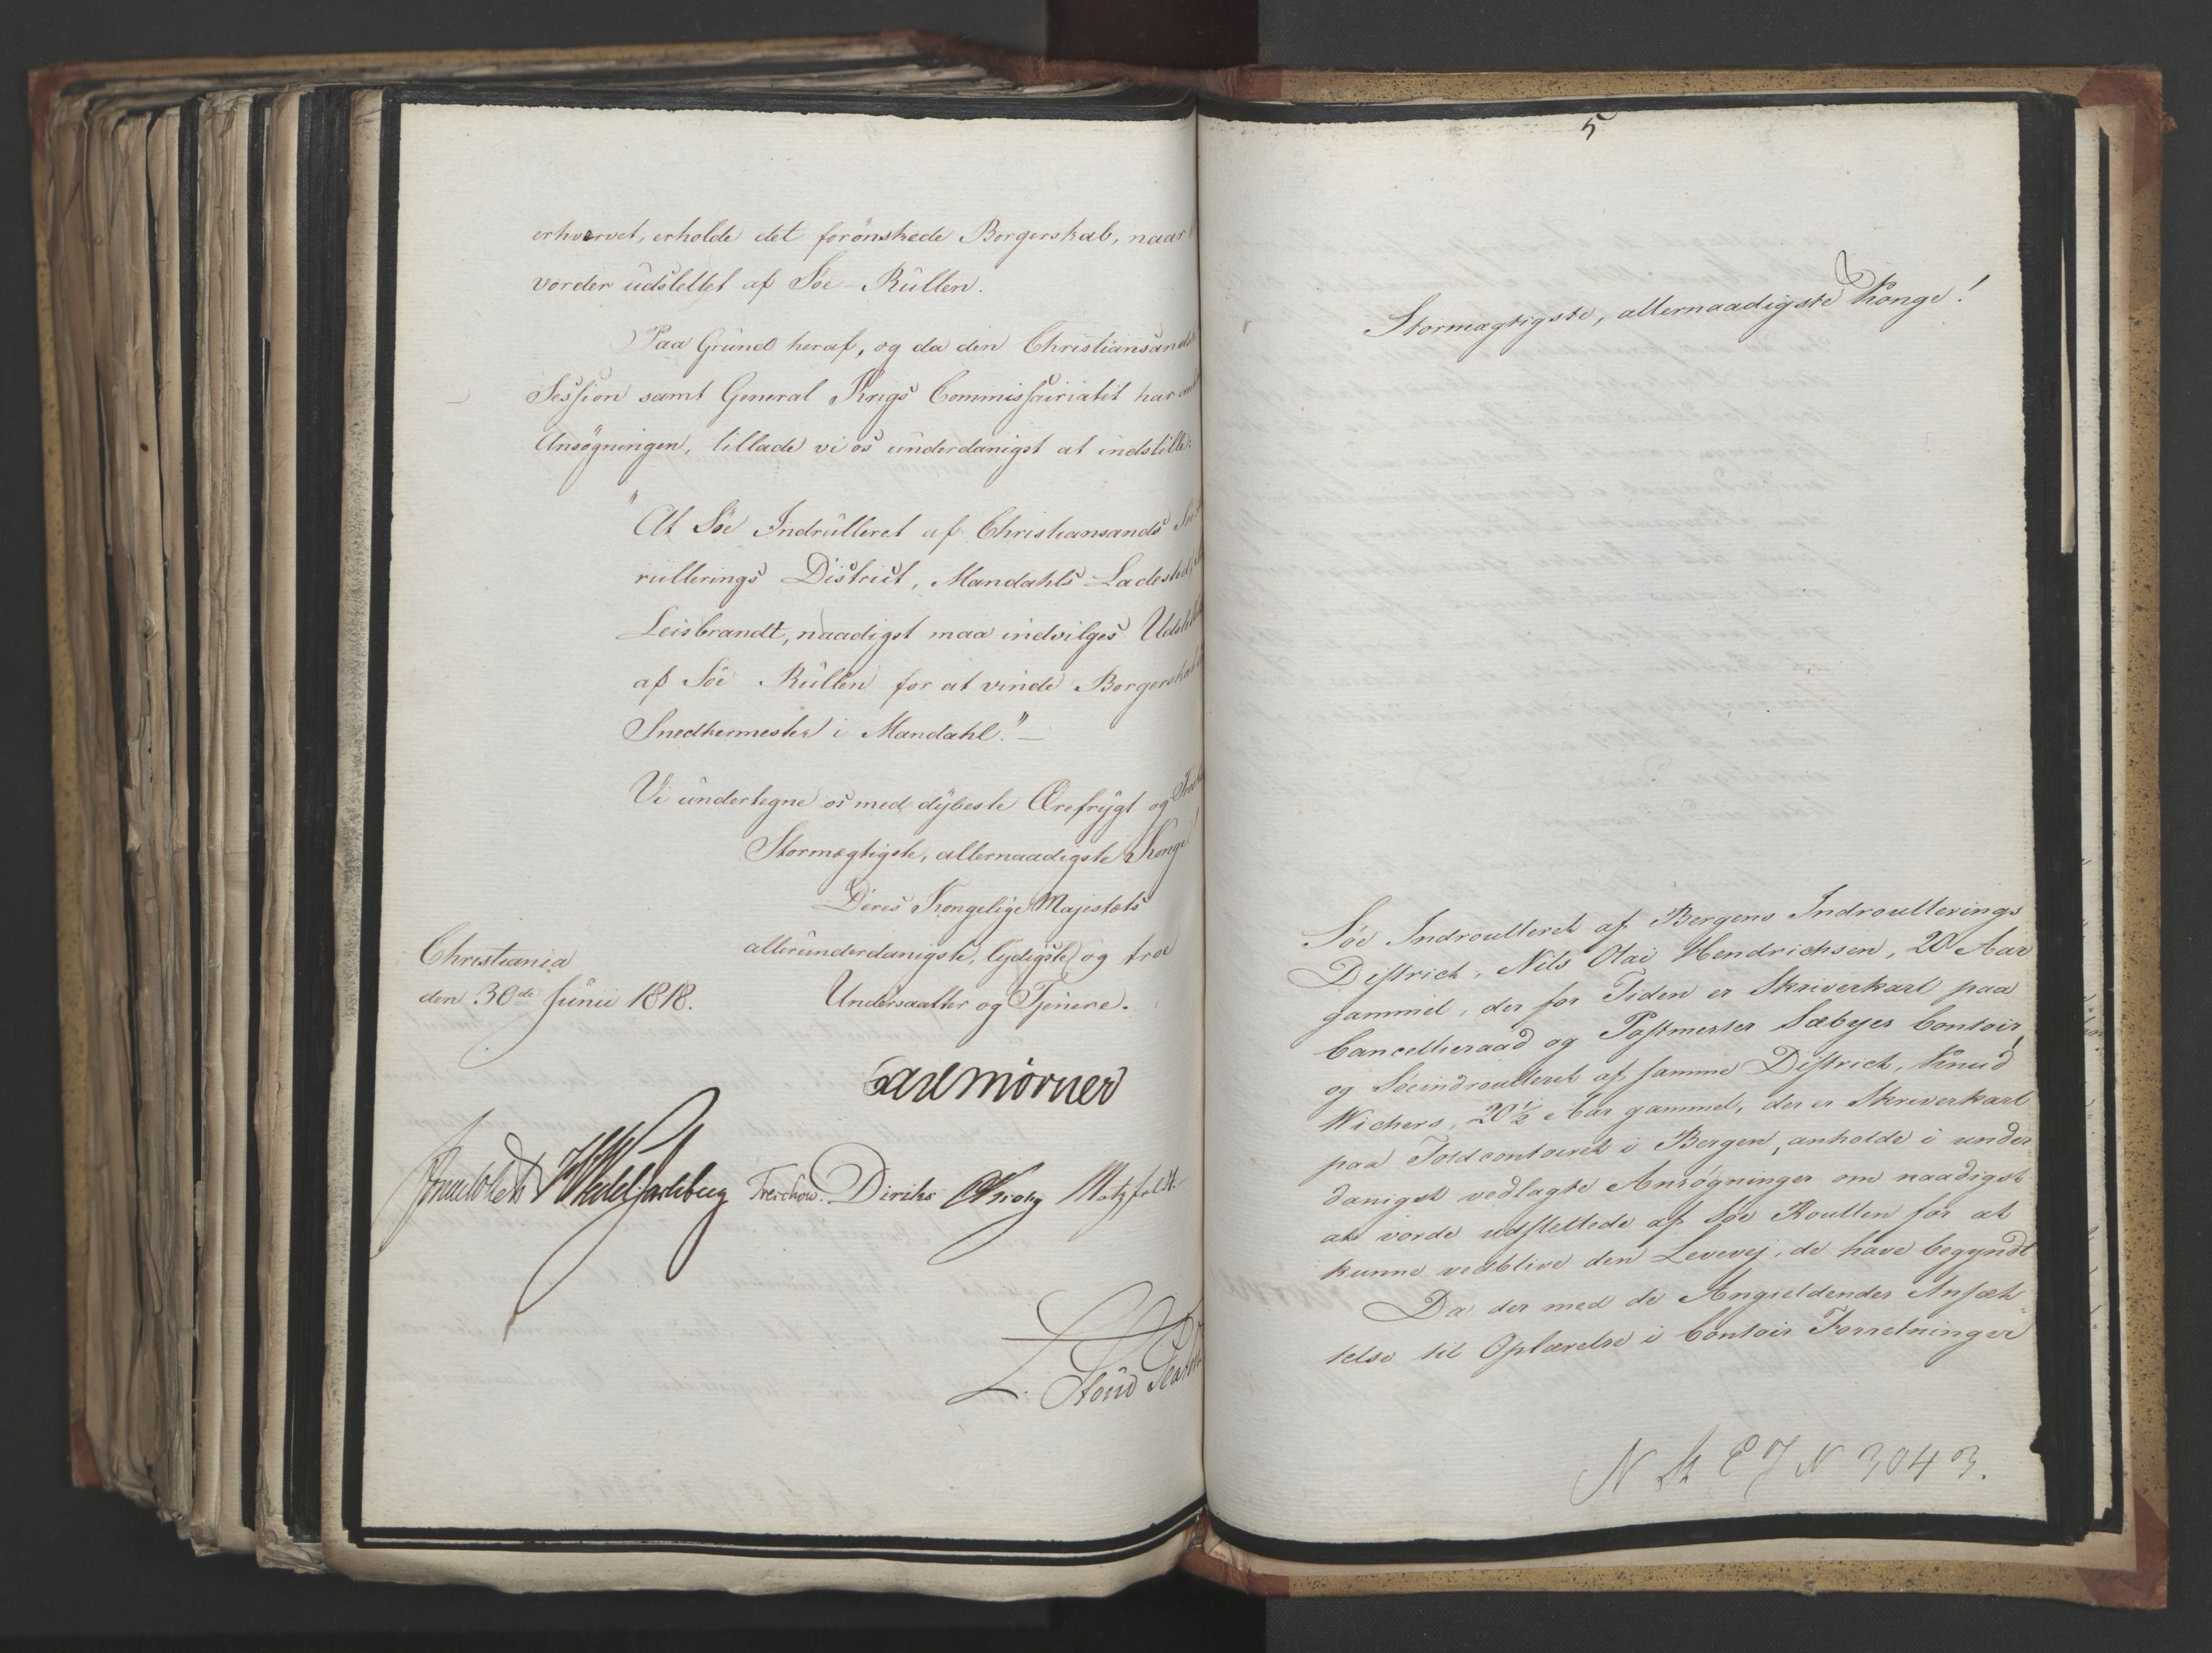 erhvervet, erholde det forönskede Borgerskab, naar
vorder udslettet af Söe-Rullen.
Paa Grund heraf, og da den Christiansandske
Session samt General Krigs Commissairiatet har
Ansögningen, tillade vi os underdanigst at indstille:
"At Söe Indrulleret af Christiansands
rullerings District, Mandahls Ladested,
Leisbrandt, naadigst maa indvilges
af Söe Rullen for at vinde Borgerskab
Snedkermester i Mandahl." —
Vi undertegne os med dybeste Ærefrygt og
Stormægtigste, allernaadigste Konge!
Deres Kongelige Majestæts
allerunderdanigste, lydigste og troe
Undersaatter og Tjenere.
Christiania
den 30de Junii 1818.
Carl Mörner
Sommhjelm HWedelJarlsberg Treschow. Diriks CKrohg Motzfeldt.
L. Stoud Platou
5
Stormægtigste, allernaadigste Konge!
Söe Indroulleret af Bergens Indroullerings
District, Nils Olai Hendrichsen, 20 Aar
gammel, der for Tiden er Skriverkarl paa
Cancellieraad og Postmester Sæbyes Contoir,
og Söeindroulleret af samme District, Knud
Wichers, 20½ Aar gammel, der er Skriverkarl
paa Toldcontoiret i Bergen, anholde i under
danigst vedlagte Ansøgninger om naadigst
at vorde udslettede af Söe Roullen for at
kunne vedblive den Levevej, de have begyndt
Da der med de Angieldendes Ansæt-
telse til Oplærelse i Contoir Forretninger
N 3043.